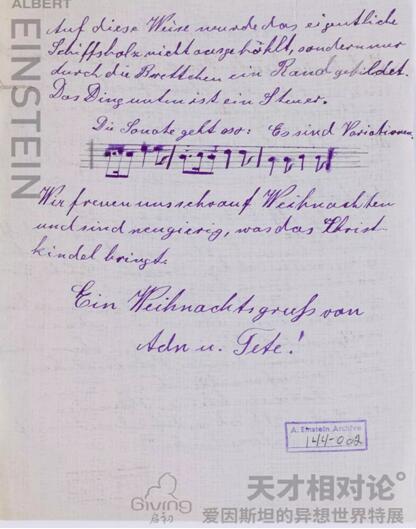 ALBERT
EINSTEIN
Auf diese Weise wurde das eigentliche
Schiffsholz nicht ausgehöhlt, sondern nur
durch die Brettchen ein Rand gebildet.
Das Ding unten ist ein Steuer.
Die Sonate geht aso: Es sind Variationen.
Wir freuen uns sehr auf Weihnachten
und sind neugierig, was das Christ-
kindel bringt.
Ein Weihnachtsgruß von
Adn u. Tete!
A. Einstein Archive
144-002
Giving
启初
天才相对论
爱因斯坦的异想世界特展